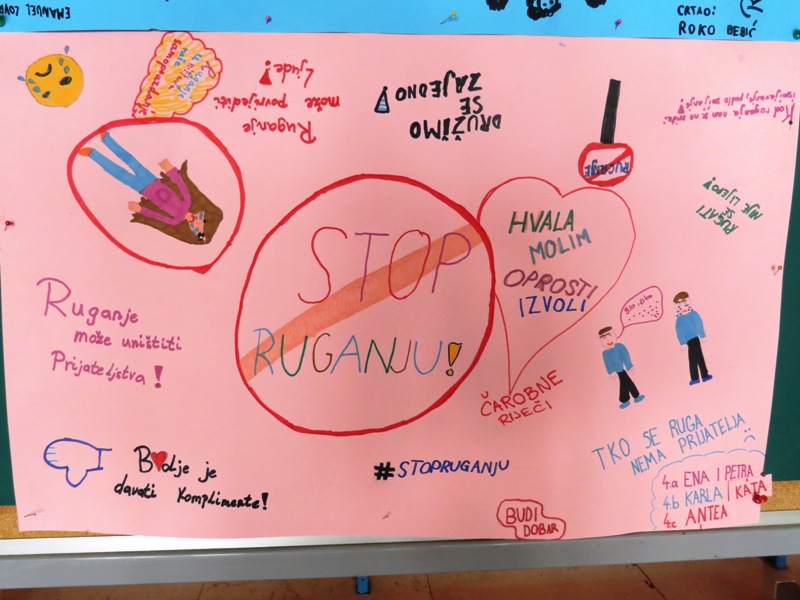 EMANUEL LOVR
CRTAO:
ROKO BEBIĆ
Ruganje
niti
naše
samopouzdanje!
Ruganje
može povrijediti
Ljude!
DRUŽIMO
SE
ZAJEDNO!
RUGANJE
Kod ruganja nam se ne sviđa
ismijavanje, podlo smijanje!
RUGATI
SE
NIJE LIJEPO!
STOP
RUGANJU!
HVALA
MOLIM
OPROSTI
IZVOLI
ČAROBNE
RIJEČI
Ruganje
može uništiti
Prijateljstva!
Bla, bla
TKO SE RUGA
NEMA PRIJATELJA
Bolje je
davati komplimente!
#STOPRUGANJU
BUDI
DOBAR
4.a ENA I PETRA
4.b KARLA I KATA
4.c ANTEA